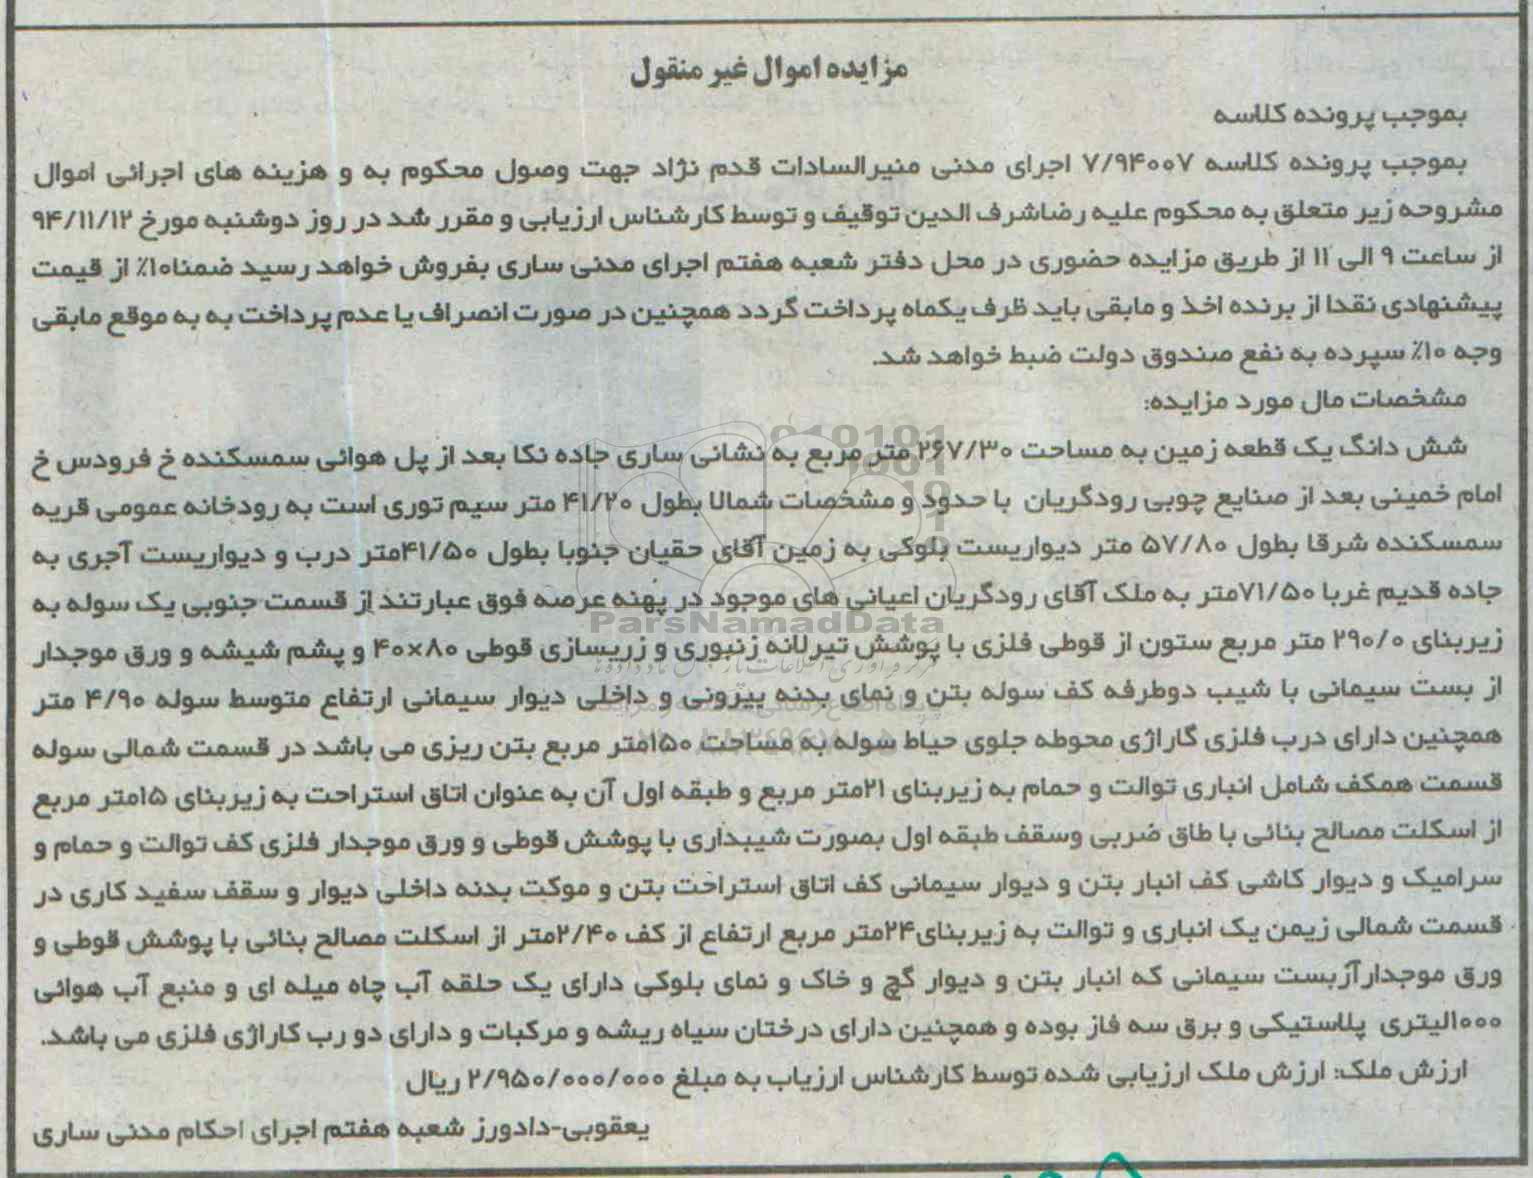 مزایده اموال غیر منقول
بموجب پرونده کلاسه
بموجب پرونده کلاسه ۷/۹۴۰۰۷ اجرای مدنی منیرالسادات قدم نژاد جهت وصول محکوم به و هزینه های اجرائی اموال
مشروحه زیر متعلق به محکوم علیه رضاشرف الدین توقیف و توسط کارشناس ارزیابی و مقرر شد در روز دوشنبه مورخ ۹۴/۱۱/۱۲
از ساعت ۹ الی ۱۱ از طریق مزایده حضوری در محل دفتر شعبه هفتم اجرای مدنی ساری بفروش خواهد رسید ضمنا۱۰٪ از قیمت
پیشنهادی نقدا از برنده اخذ و مابقی باید ظرف یکماه پرداخت گردد همچنین در صورت انصراف یا عدم پرداخت به به موقع مابقی
وجه ۱۰٪ سپرده به نفع صندوق دولت ضبط خواهد شد.
مشخصات مال مورد مزایده:
شش دانگ یک قطعه زمین به مساحت ۲۶۷/۳۰ متر مربع به نشانی ساری جاده نکا بعد از پل هوائی سمسکنده خ فرودس خ
امام خمینی بعد از صنایع چوبی رودگریان با حدود و مشخصات شمالا بطول ۴۱/۲۰ متر سیم توری است به رودخانه عمومی قریه
سمسکنده شرقا بطول ۵۷/۸۰ متر دیواریست بلوکی به زمین آقای حقیان جنوبا بطول ۴۱/۵۰متر درب و دیواریست آجری به
جاده قدیم غربا ۷۱/۵۰متر به ملک آقای رودگریان اعیانی های موجود در پهنه عرصه فوق عبارتند از قسمت جنوبی یک سوله به
ParsNamadData
زیربنای ۲۹۰/۰ متر مربع ستون از قوطی فلزی با پوشش تیرلانه زنبوری و زریسازی قوطی ۸۰×۴۰ و پشم شیشه و ورق موجدار
از بست سیمانی با شیب دوطرفه کف سوله بتن و نمای بدنه بیرونی و داخلی دیوار سیمانی ارتفاع متوسط سوله ۴/۹۰ متر
همچنین دارای درب فلزی گاراژی محوطه جلوی حیاط سوله به مساحت ۱۵۰متر مربع بتن ریزی می باشد در قسمت شمالی سوله
قسمت همکف شامل انباری توالت و حمام به زیربنای ۲۱متر مربع و طبقه اول آن به عنوان اتاق استراحت به زیربنای ۱۵متر مربع
از اسکلت مصالح بنائی با طاق ضربی وسقف طبقه اول بصورت شیبداری با پوشش قوطی و ورق موجدار فلزی کف توالت و حمام و
سرامیک و دیوار کاشی کف انبار بتن و دیوار سیمانی کف اتاق استراحت بتن و موکت بدنه داخلی دیوار و سقف سفید کاری در
قسمت شمالی زیمن یک انباری و توالت به زیربنای۲۴متر مربع ارتفاع از کف ۲/۴۰متر از اسکلت مصالح بنائی با پوشش قوطی و
ورق موجدارآزبست سیمانی که انبار بتن و دیوار گچ و خاک و نمای بلوکی دارای یک حلقه آب چاه میله ای و منبع آب هوائی
۱۰۰۰لیتری پلاستیکی و برق سه فاز بوده و همچنین دارای درختان سیاه ریشه و مرکبات و دارای دو رب کاراژی فلزی می باشد.
ارزش ملک: ارزش ملک ارزیابی شده توسط کارشناس ارزیاب به مبلغ ۲/۹۵۰/۰۰۰/۰۰۰ ریال
یعقوبی-دادورز شعبه هفتم اجرای احکام مدنی ساری